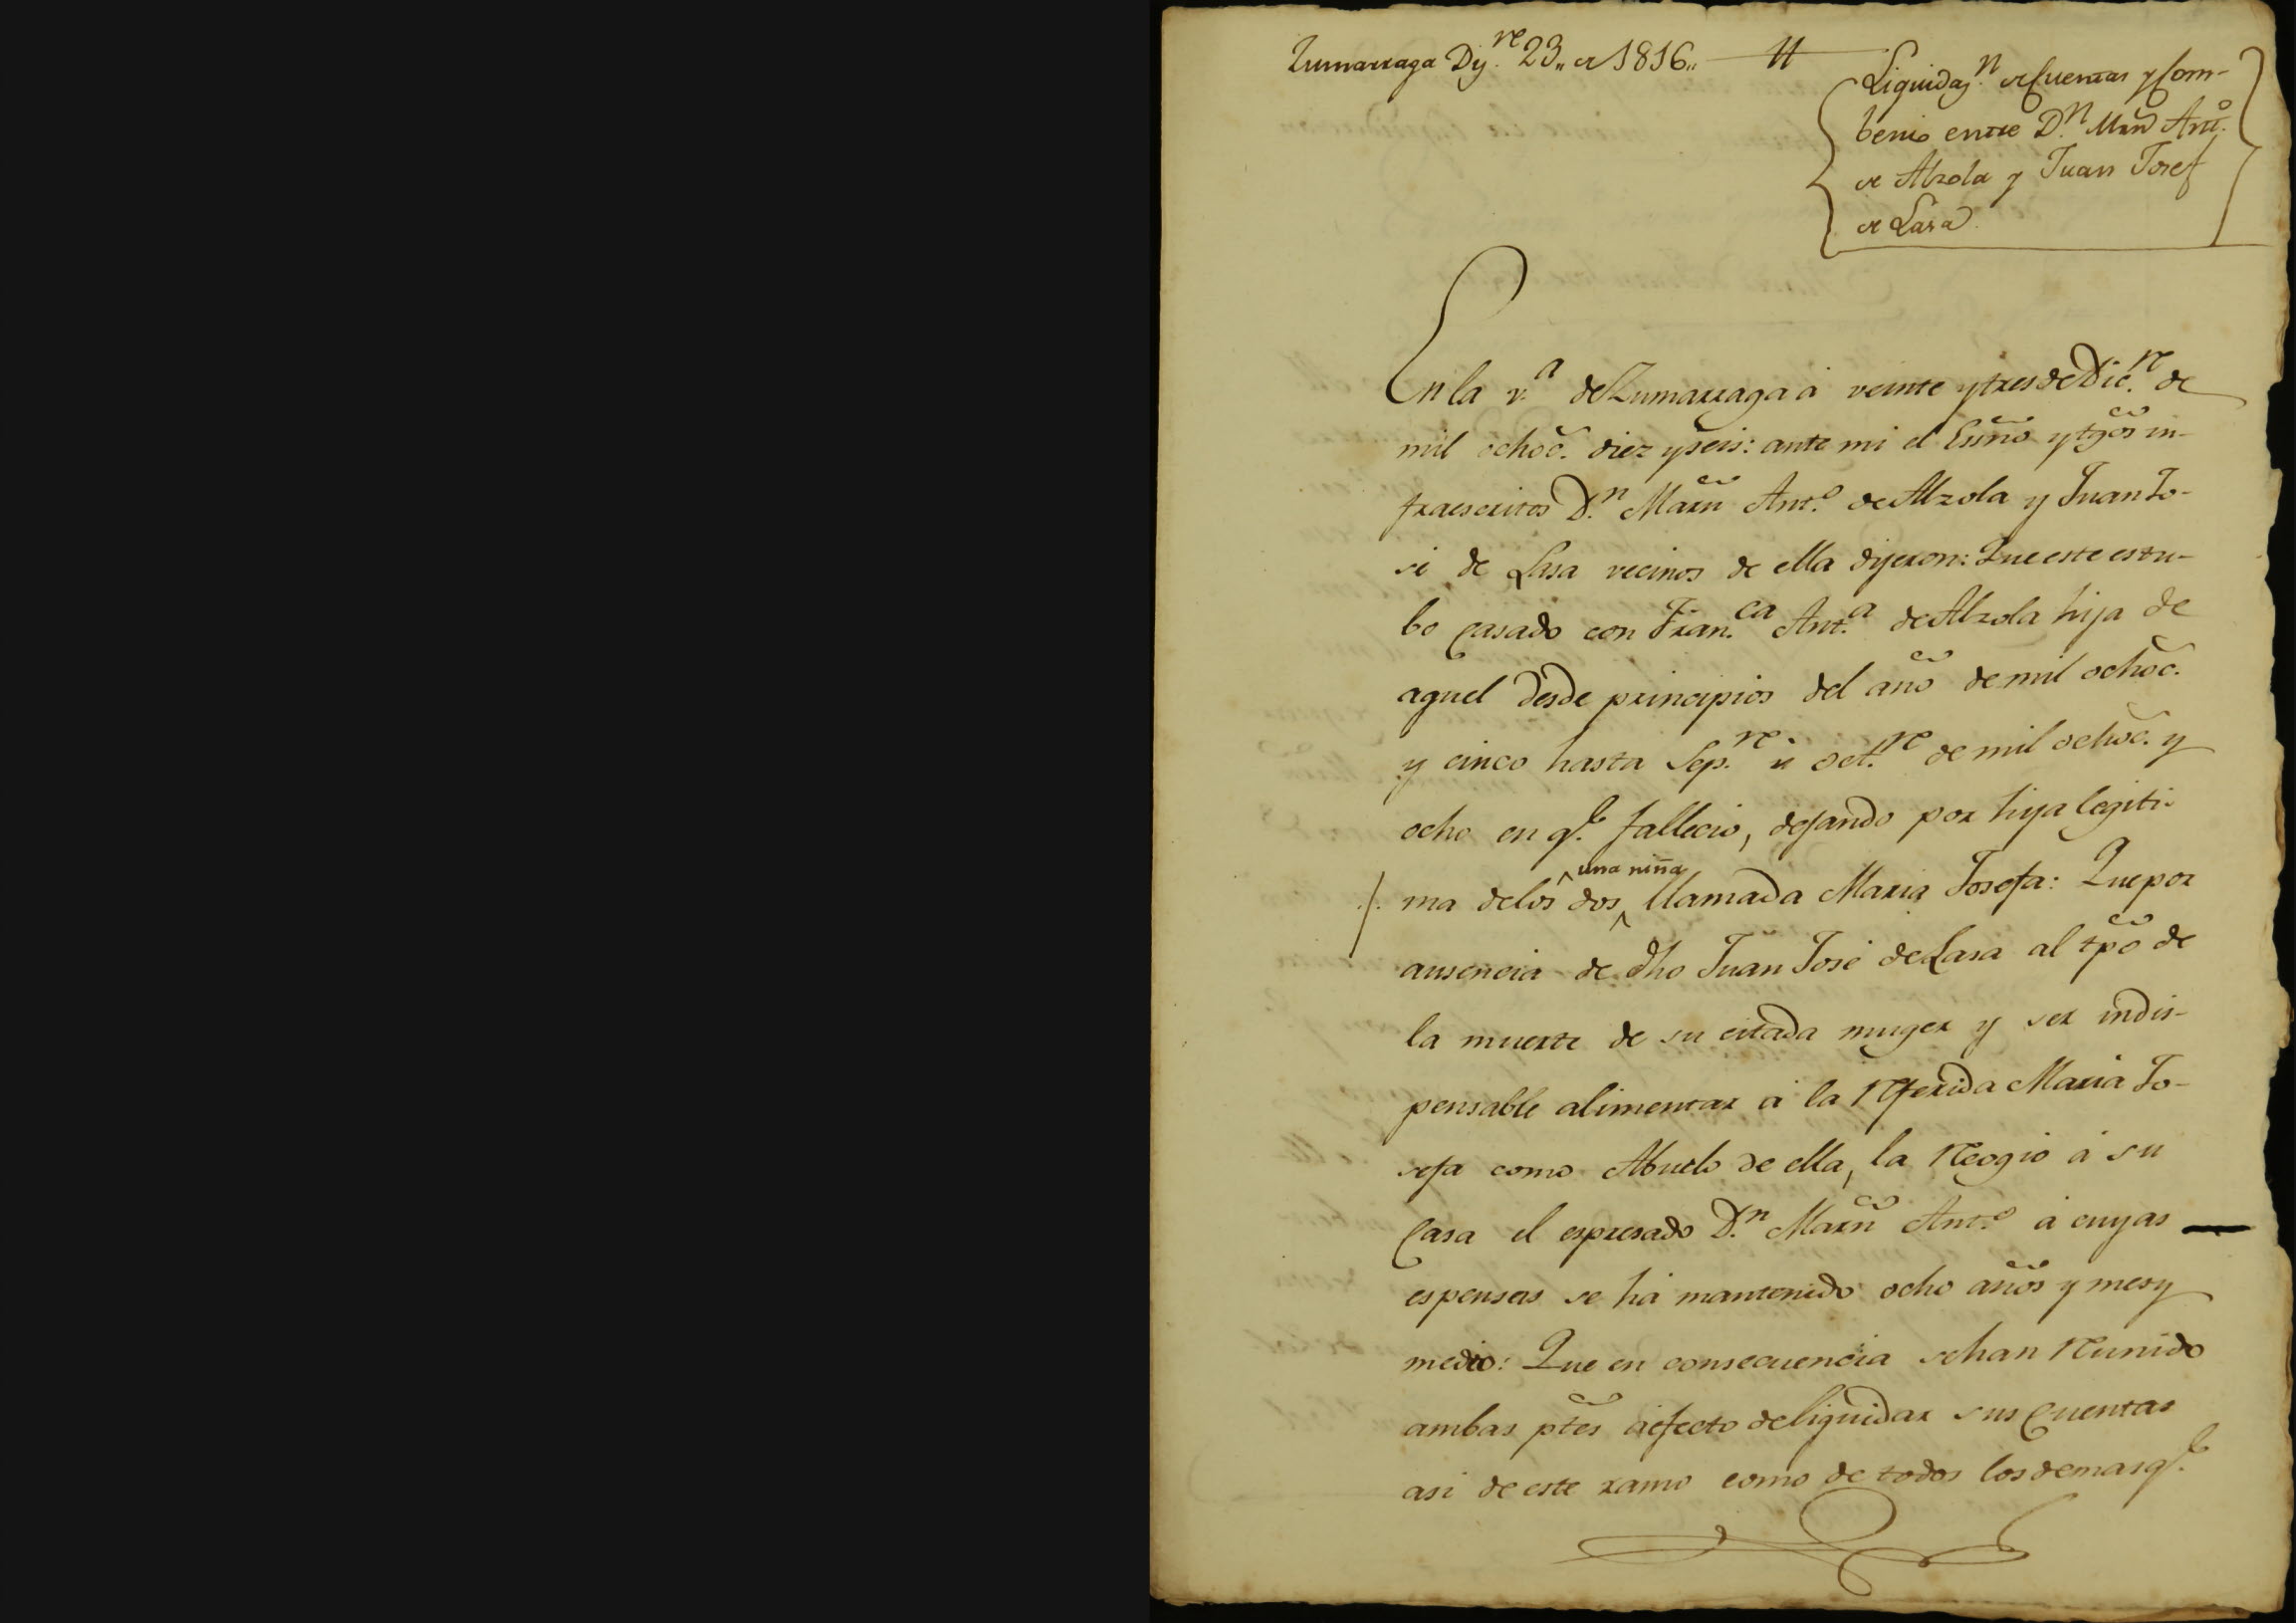 Zumarraga Dij.re 23,, de 1816,,
Liquidaz.n de Cuentas y Com-
benio entre D.n Mrn Ant.o
de Alzola y Juan Josef
de Lasa
En la v.a de Zumarraga á veinte y tres de Dic.re de
mil ochoc. diez y seis: ante mi el Essño y tgos in-
fraescritos D.n Marñ Ant.o de Alzola y Juan Jo-
sé de Lasa vecinos de ella dijeron: Que este estu-
bo casado con Fran.ca Ant.a de Alzola hija de
aquel desde principios del año de mil ochoc.
y cinco hasta Sep.re ù oct.re de mil ochoc. y
ocho en q.e fallecio, dejando por hija legiti-
ma delos dos una niña llamada Maria Josefa: Que por
ausencia de dho Juan José de Lasa al tpo de
la muerte de su citada muger y ser indis-
pensable alimentar á la referida Maria Jo-
sefa como Abuelo de ella, la recogio á su
Casa el espresado D.n Marñ Ant.o á cuyas
espensas se há mantenido ocho años y mes y
medio: Que en consecuencia se han reunido
ambas ptes áefecto de liquidar sus Cuentas
asi de este ramo como de todos los demas q.e